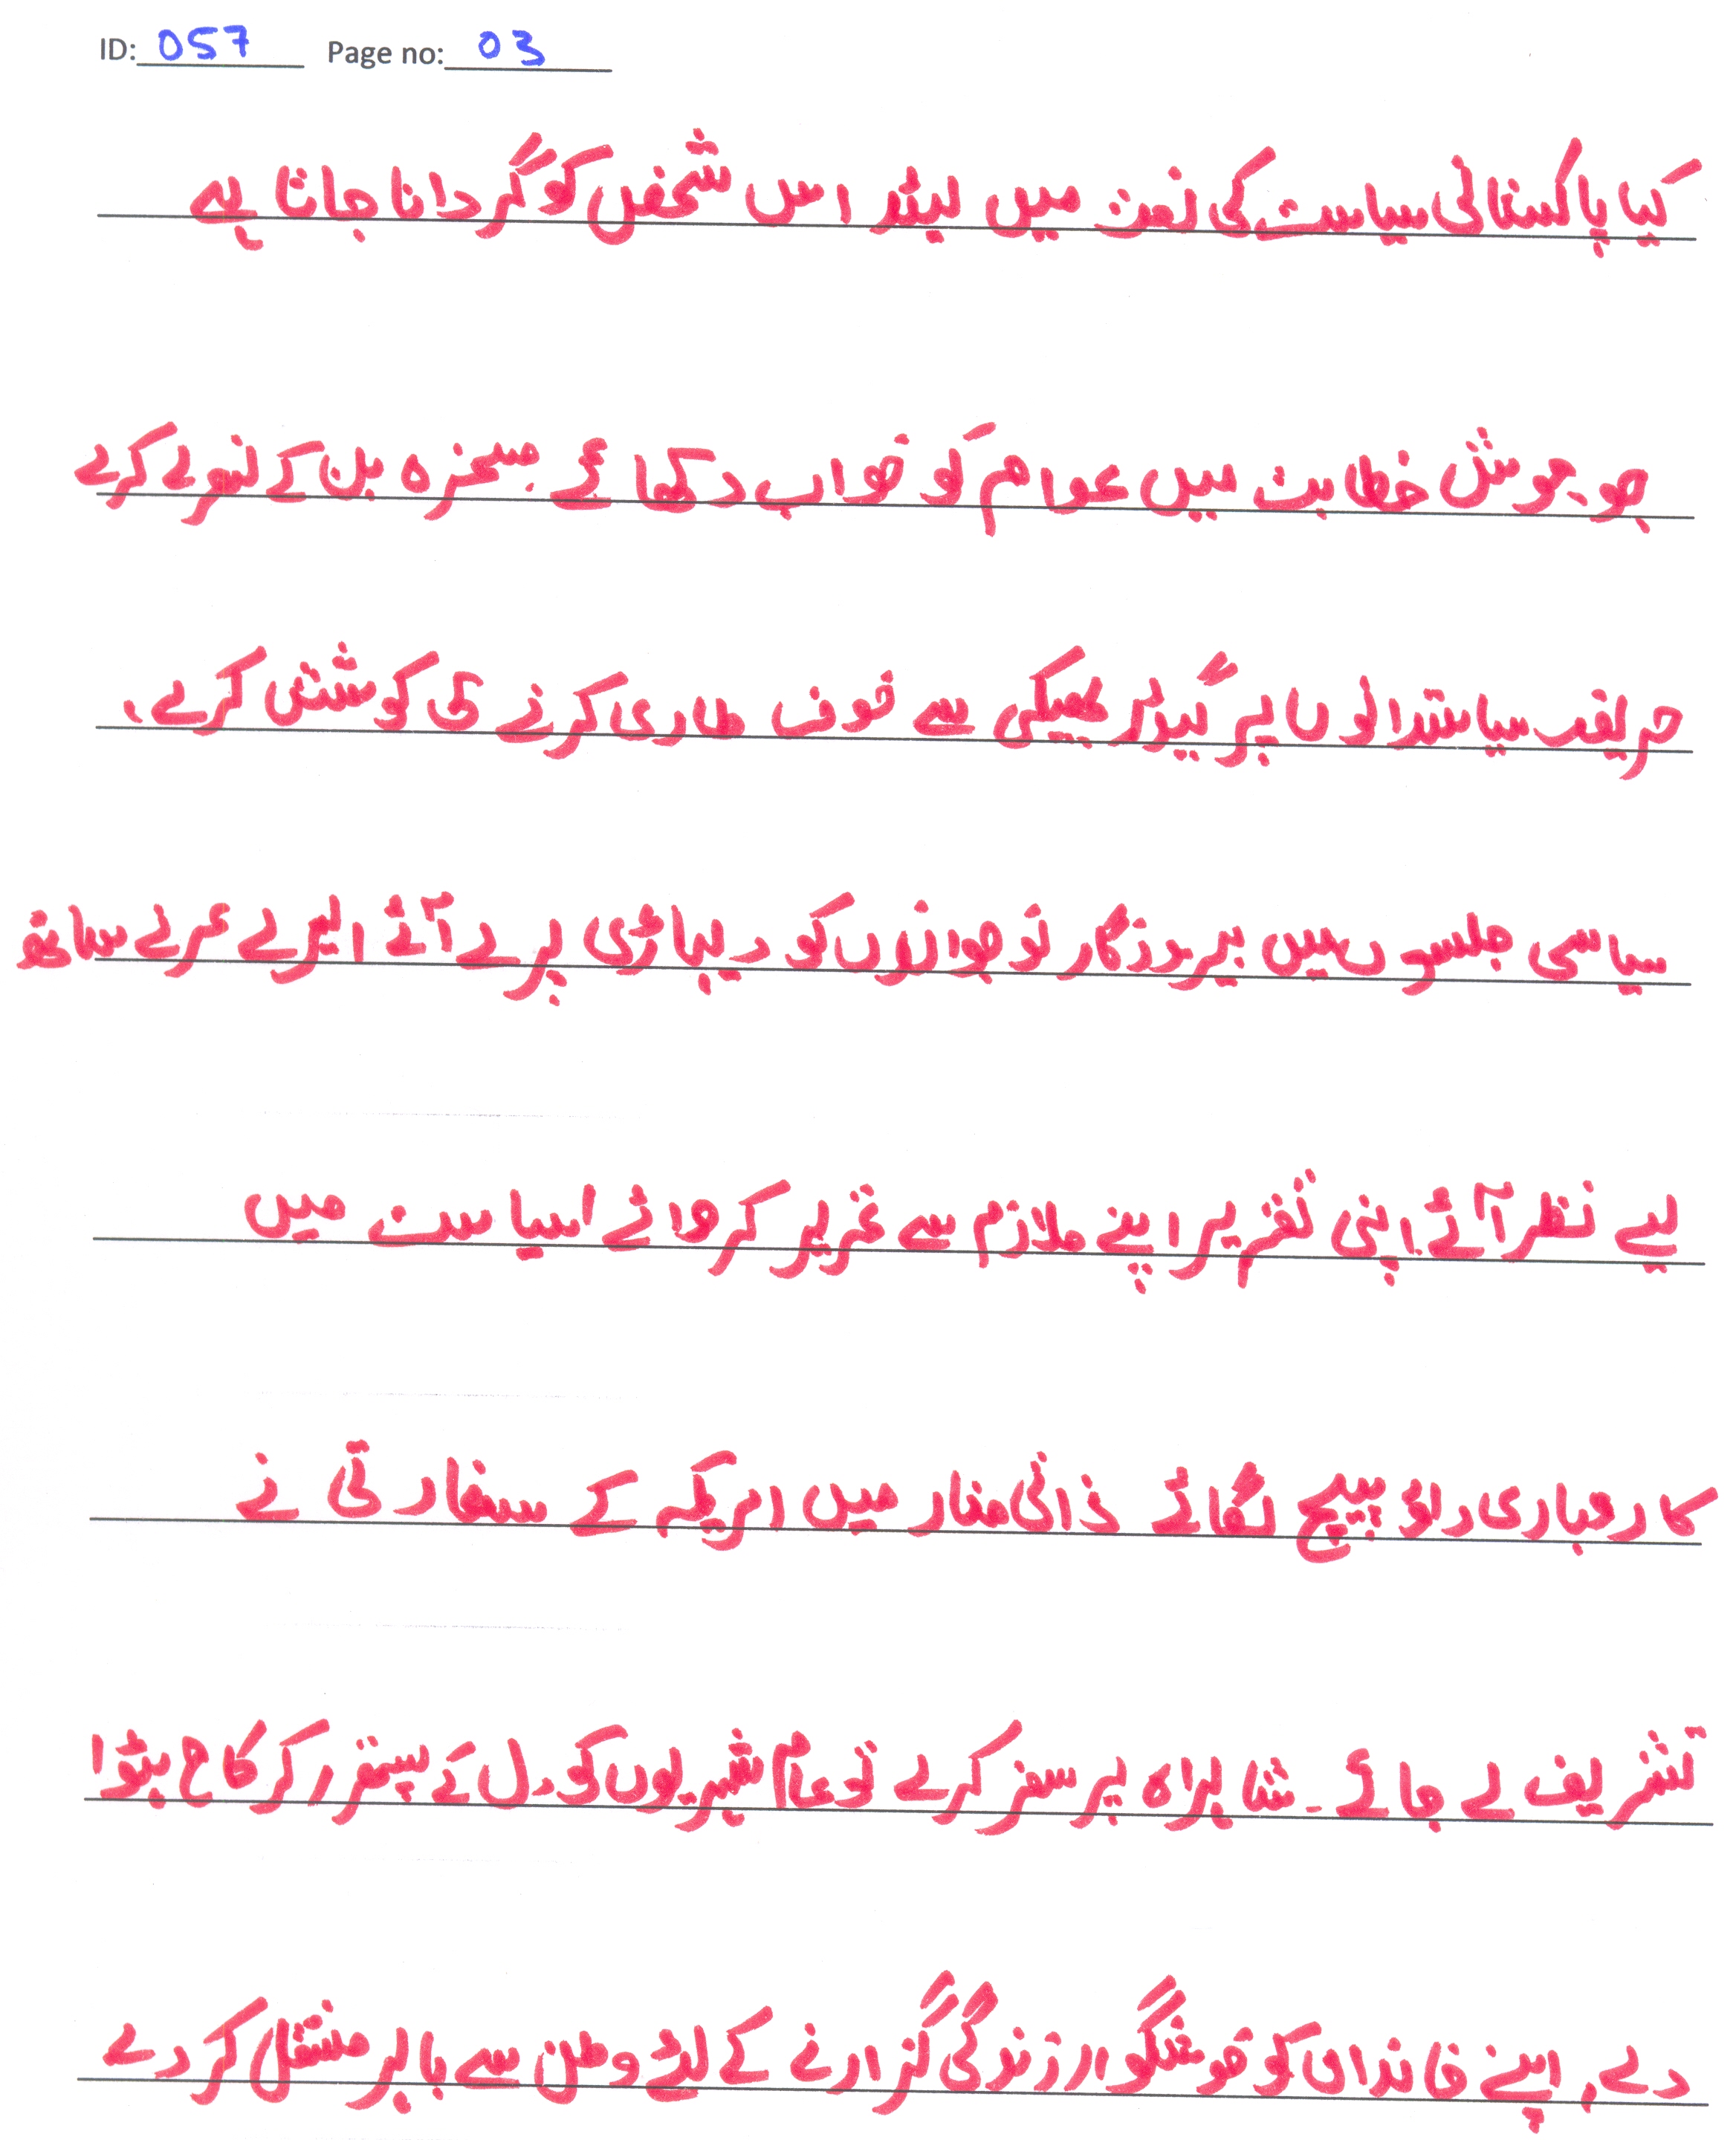 ID: 057 Page no: 03
کیا پاکستانی سیاست کی لغت میں لیڈر اس شخص کو گردانا جاتا ہے
جو جوش خطابت میں عوام کو خواب دکھائے مسخرہ بن کے نعرے کرے
حریف سیاستدانوں پر گیدڑ بھبکی سے خوف طاری کرنے کی کوشش کرے،
سیاسی جلسوں میں بیروزگار نوجوانوں کو دیہاڑی پر لے آئے ایرے غیرے ساتھ
لیے نظر آئے۔ اپنی تقریر اپنے ملازم سے تحریر کروائے اسیاست میں
کاروباری داؤ پیچ لگائے ذاتی مفاد میں امریکہ کے سفارتی نے
تشریف لے جائے۔ شاہراہ پر سفر کرے تو عام شہریوں کو دل کے پتھر رکر کاح ہٹوا
دے، اپنے خاندان کو خوشگوار زندگی گزارنے کے لئے وطن سے باہر منتقل کر دے